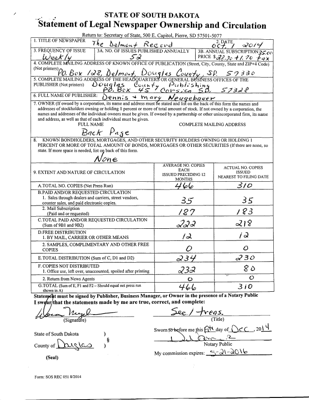 STATE OF SOUTH DAKOTA
Statement of Legal Newspaper Ownership and Circulation
Return to: Secretary of State, 500 E. Capitol, Pierre, SD 57501-5077
1. TITLE OF NEWSPAPER The Delmont Record
2. DATE Oct 1 2014
3. FREQUENCY OF ISSUE Weekly
3A. NO. OF ISSUES PUBLISHED ANNUALLY 52
3B. ANNUAL SUBSCRIPTION PRICE
4. COMPLETE MAILING ADDRESS OF KNOWN OFFICE OF PUBLICATION (Street, City, County, State and ZIP+4 Code)
(Not printers) P.O. Box 128, Delmont, Douglas County, SD 57330
5. COMPLETE MAILING ADDRESS OF THE HEADQUARTERS OR GENERAL BUSINESS OFFICES OF THE
PUBLISHER (Not printer) Douglas County Publishing
P.O. Box 45, Corsica, SD 57328
6. FULL NAME OF PUBLISHER:
7. OWNER (If owned by a corporation, its name and address must be stated and also on the back of this form the names and
addresses of stockholders owning or holding 1 percent or more of total amount of stock. If not owned by a corporation, the
names and addresses of the individual owners must be given. If owned by a partnership or other unincorporated firm, its name
and address, as well as that of each individual must be given).
FULL NAME COMPLETE MAILING ADDRESS
Back Page
8. KNOWN BONDHOLDERS, MORTGAGES, AND OTHER SECURITY HOLDERS OWNING OR HOLDING 1
PERCENT OR MORE OF TOTAL AMOUNT OF BONDS, MORTGAGES OR OTHER SECURITIES (if there are none, so
state. If more space is needed, list on back of this form.
None
9. EXTENT AND NATURE OF CIRCULATION
AVERAGE NO. COPIES EACH ISSUED PRECEDING 12 MONTHS
ACTUAL NO. COPIES ISSUED NEAREST TO FILING DATE
A. TOTAL NO. COPIES (Net Press Run) 466 310
B. PAID AND/OR REQUESTED CIRCULATION
1. Sales through dealers and carriers, street vendors,
counter sales, and paid electronic copies. 35 35
2. Mail Subscription
(Paid and or requested) 187 183
C. TOTAL PAID AND/OR REQUESTED CIRCULATION
(Sum of 9B1 and 9B2) 222 218
D. FREE DISTRIBUTION
1. BY MAIL, CARRIER OR OTHER MEANS 12 12
2. SAMPLES, COMPLIMENTARY AND OTHER FREE
COPIES 0 0
E. TOTAL DISTRIBUTION (Sum of C, D1 and D2) 234 230
F. COPIES NOT DISTRIBUTED
1. Office use, left over, unaccounted, spoiled after printing 232 80
2. Return from News Agents 0 0
G. TOTAL (Sum of E, F1 and F2 – Should equal net press run
shown in A) 466 310
Statement must be signed by Publisher, Business Manager, or Owner in the presence of a Notary Public
I swear that the statements made by me are true, correct, and complete:
Sec / treas.
(Signature) (Title)
State of South Dakota )
§
County of Douglas )
Sworn to before me this day of Dec, 2014
Notary Public
(Seal)
My commission expires: 5-21-2016
Form: SOS REC 051 8/2014